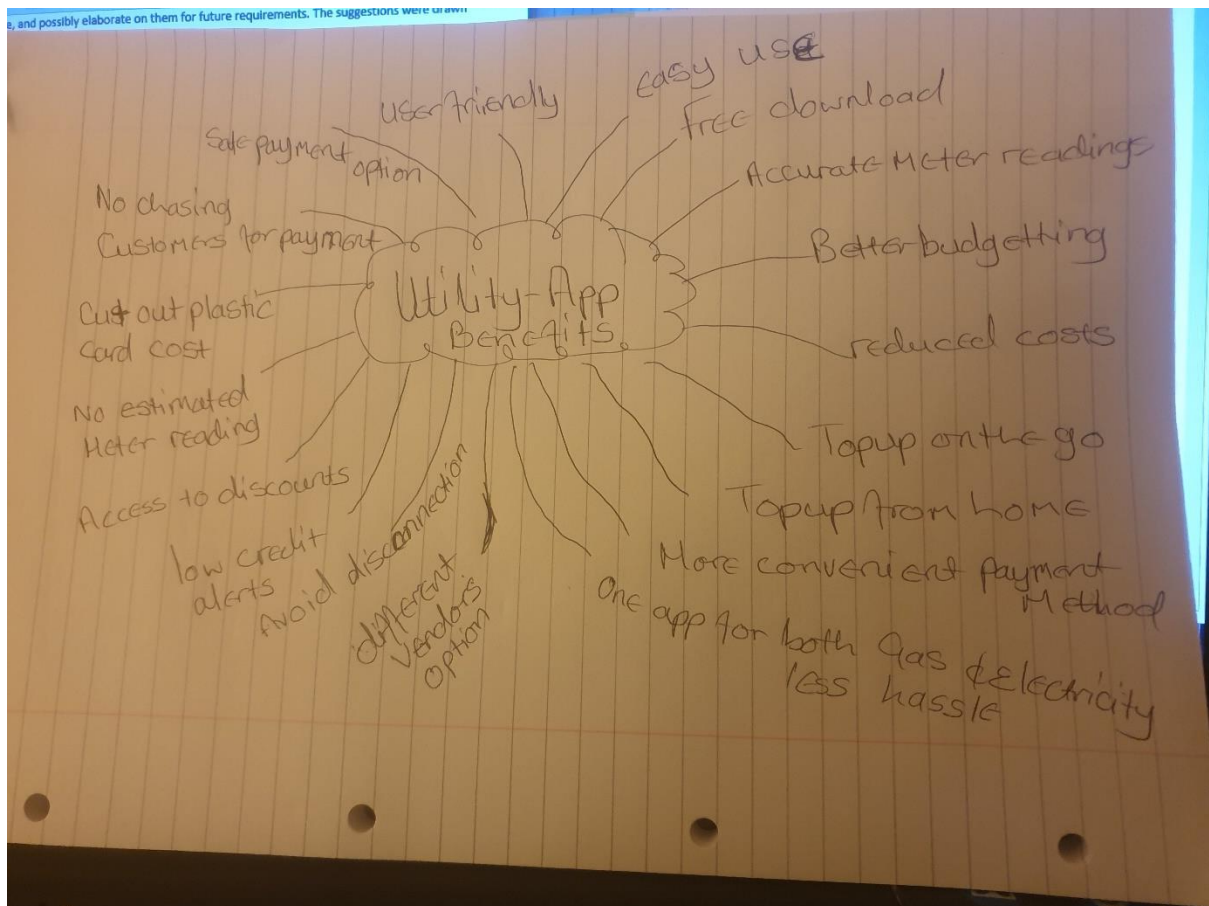 e, and possibly elaborate on them for future requirements. The suggestions were drawn
Utility-App
Benefits
User friendly
easy use
free download
Accurate Meter readings
Better budgetting
reduced costs
Topup on the go
Topup from home
More convenient payment
Method
One app for both Gas & Electricity
less hassle
different
vendors
option
Avoid disconnection
low credit
alerts
Access to discounts
No estimated
Meter reading
Cut out plastic
Card cost
No chasing
Customers for payment
Safe payment
option